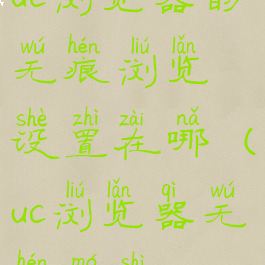 uc浏览器的
wú hén liú lǎn
无痕浏览
shè zhì zài nǎ
设置在哪（
liú lǎn qì wú
uc浏览器无
hén mó shì